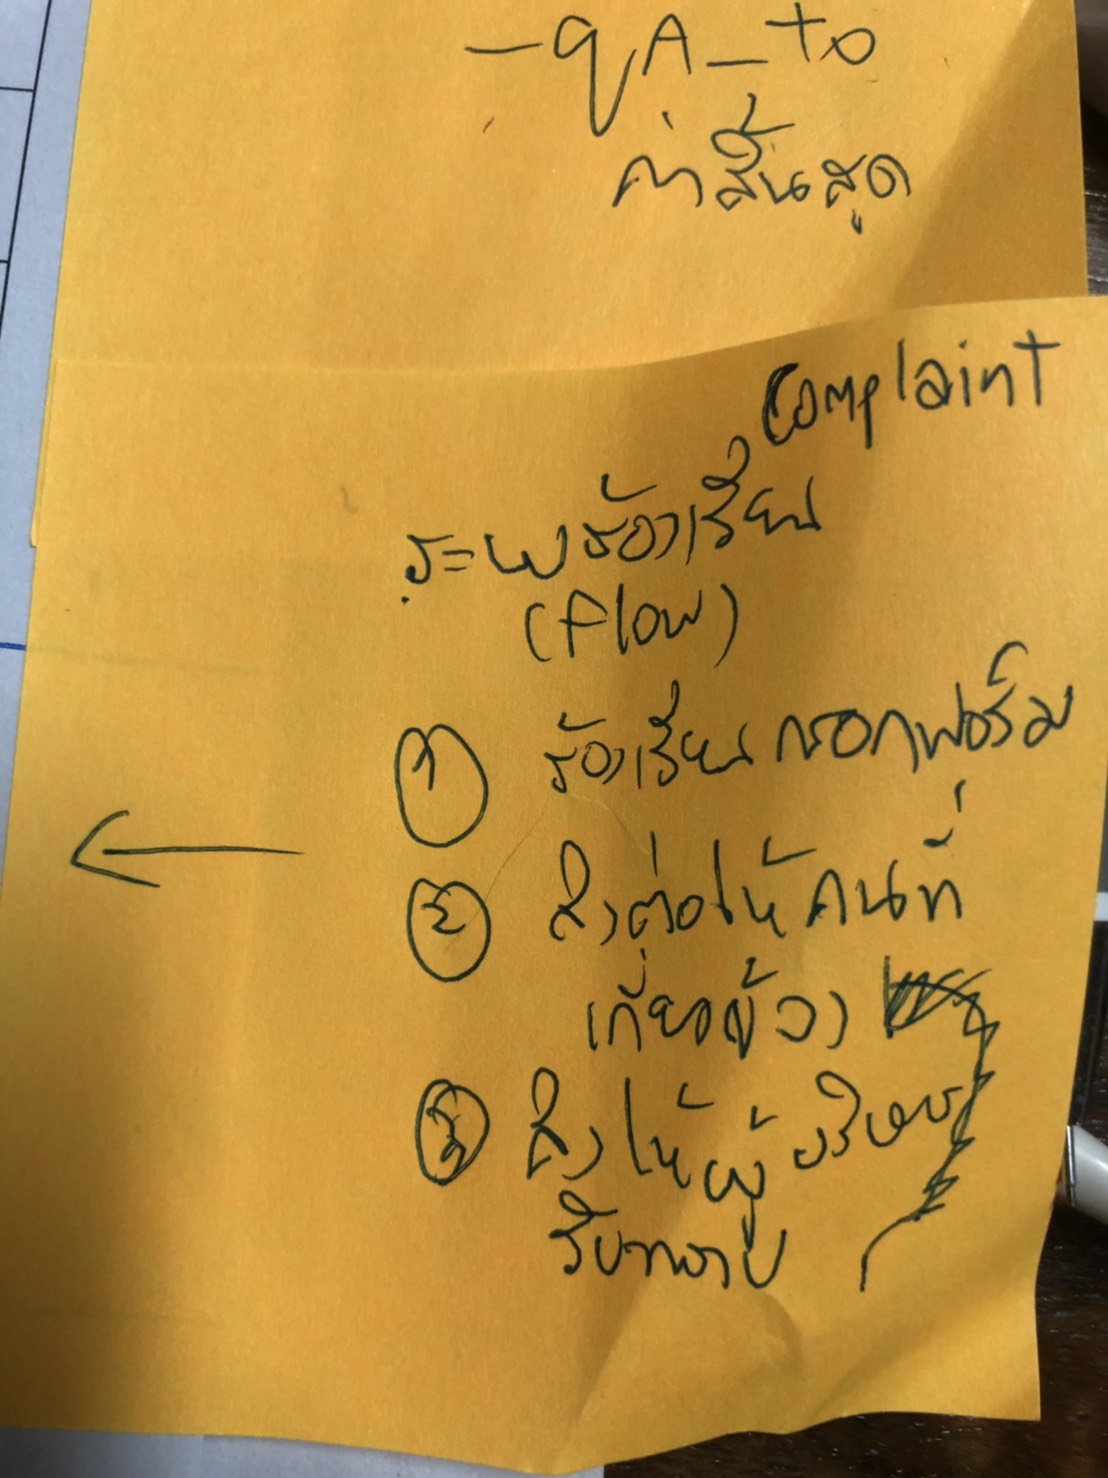 -qA_to
ค่าสิ้นสุด
Complaint
ระบบร้องเรียน
(flow)
① ร้องเรียน กรอกฟอร์ม
② ส่งต่อให้คนที่
เกี่ยวข้อง
③ ส่งให้ผู้บริหาร
รับทราบ